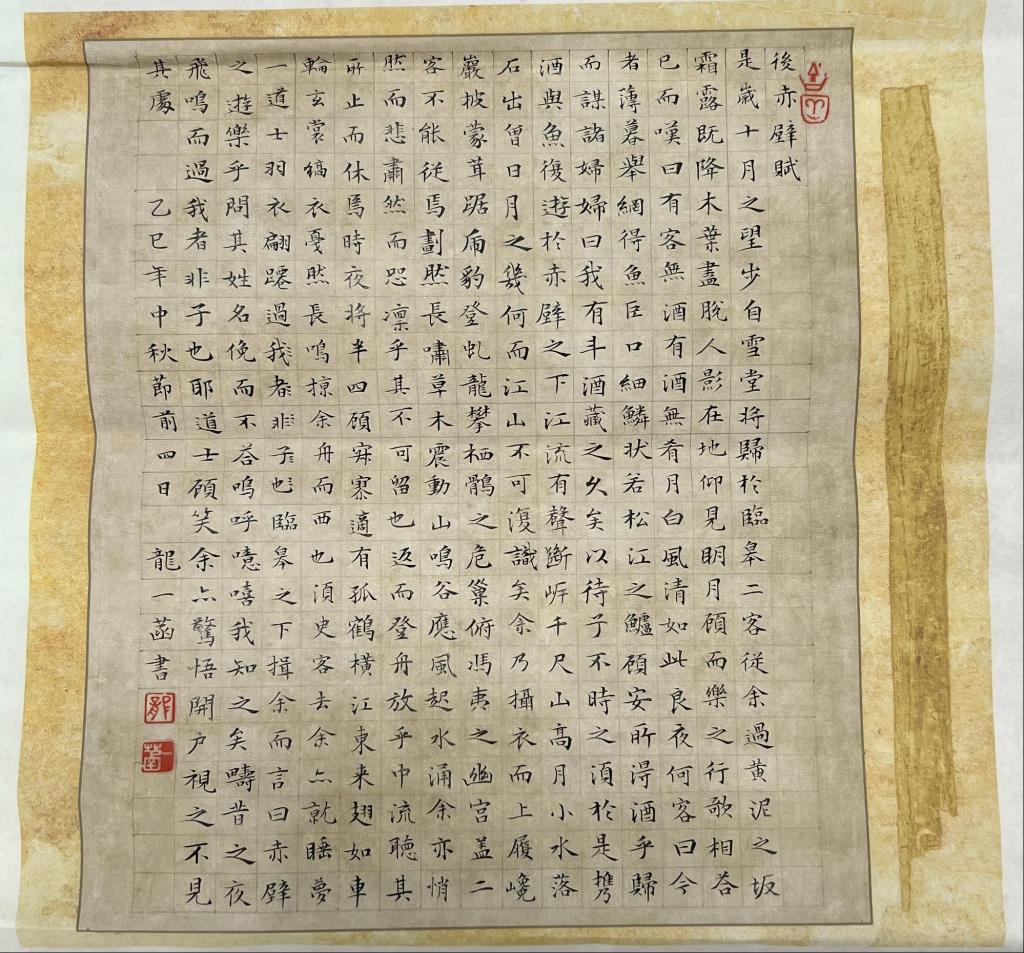 後赤壁賦
是歲十月之望步自雪堂將歸於臨皋二客從余過黄泥之坂
霜露既降木葉盡脫人影在地仰見明月顧而樂之行歌相荅
已而嘆曰有客無酒有酒無肴月白風清如此良夜何客曰今
者薄暮舉網得魚巨口細鱗狀若松江之鱸顧安所得酒乎歸
而謀諸婦婦曰我有斗酒藏之久矣以待子不時之須於是携
酒與魚復遊於赤壁之下江流有聲斷岸千尺山高月小水落
石出曾日月之幾何而江山不可復識矣余乃攝衣而上履巉
巖披蒙茸踞虎豹登虬龍攀栖鶻之危巢俯馮夷之幽宫盖二
客不能從焉劃然長嘯草木震動山鳴谷應風起水涌余亦悄
然而悲肅然而恐凛乎其不可留也返而登舟放乎中流聽其
所止而休焉時夜將半四顧寂寥適有孤鶴橫江東来翅如車
輪玄裳縞衣戛然長鳴掠余舟而西也須臾客去余亦就睡夢
一道士羽衣翩躚過我者非子也臨皋之下揖余而言曰赤壁
之遊樂乎問其姓名俛而不荅嗚呼噫嘻我知之矣疇昔之夜
飛鳴而過我者非子也耶道士顧笑余亦驚悟開户視之不見
其處 乙巳年中秋節前四日 龍一菡書